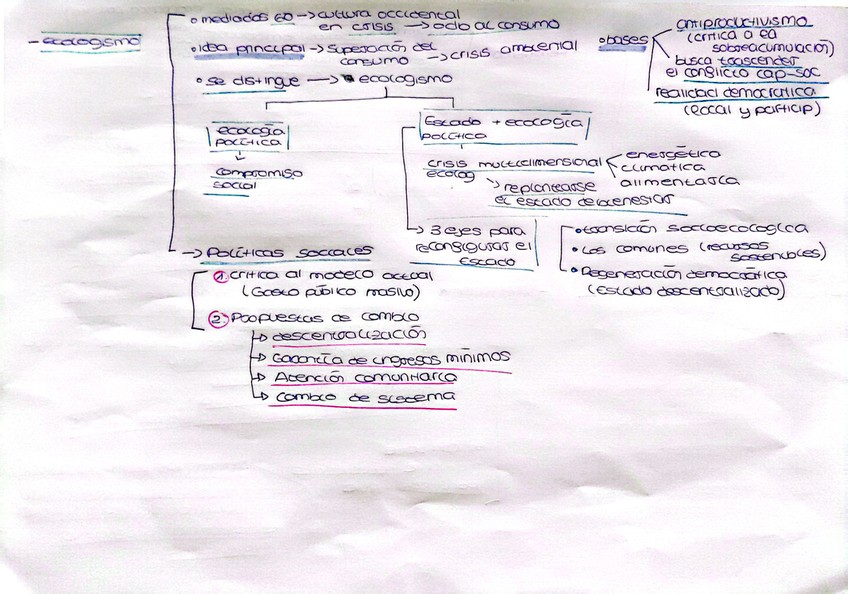 - ecologismo
• mediados 60 → cultura occidental
en crisis → odio al consumo
• idea principal → superación del
consumo → crisis ambiental
• se distingue → ecologismo
• bases
antiproductivismo
(crítica a la
sobreacumulación)
busca trascender
el conflicto cap-soc
realidad democrática
(local y particip)
ecología
política
↓
compromiso
social
Estado + ecología
política
crisis multidimensional
ecolog
energética
climática
alimentaria
↘ replantearse
el estado de bienestar
→ 3 ejes para
reconfigurar el
Estado
• transición socioecológica
• Los comunes (recursos
sostenibles)
• Regeneración democrática
(Estado descentralizado)
→ Políticas sociales
① crítica al modelo actual
(Gasto público masivo)
② Propuestas de cambio
↳ descentralización
↳ Garantía de ingresos mínimos
↳ Atención comunitaria
↳ Cambio de sistema